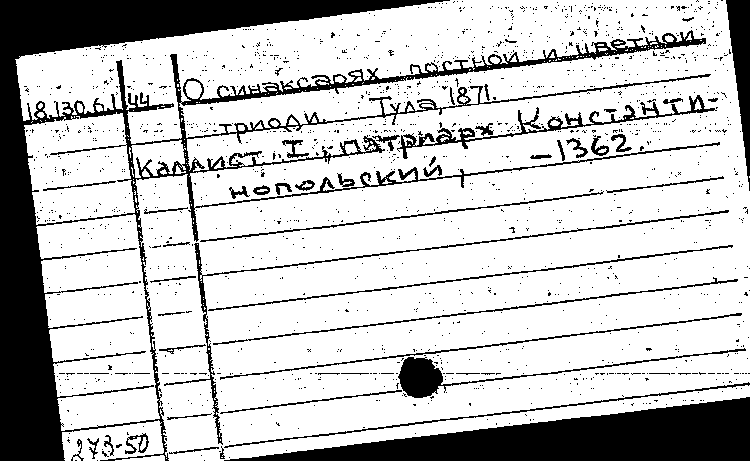 18.130.6.1 44 О синаксарях постной и цветной
триоди. Тула, 1871.
Каллист I, патриарх Константи-
нопольский, -1362.
273-50